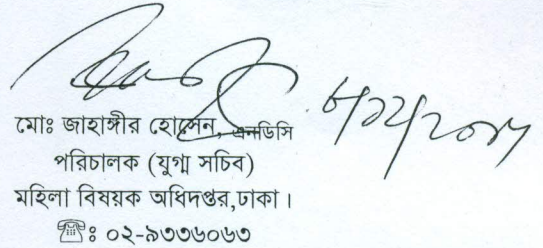 মোঃ জাহাঙ্গীর হোসেন, এনডিসি
পরিচালক (যুগ্ম সচিব)
মহিলা বিষয়ক অধিদপ্তর,ঢাকা।
☎ঃ ০২-৯৩৩৬০৬৩